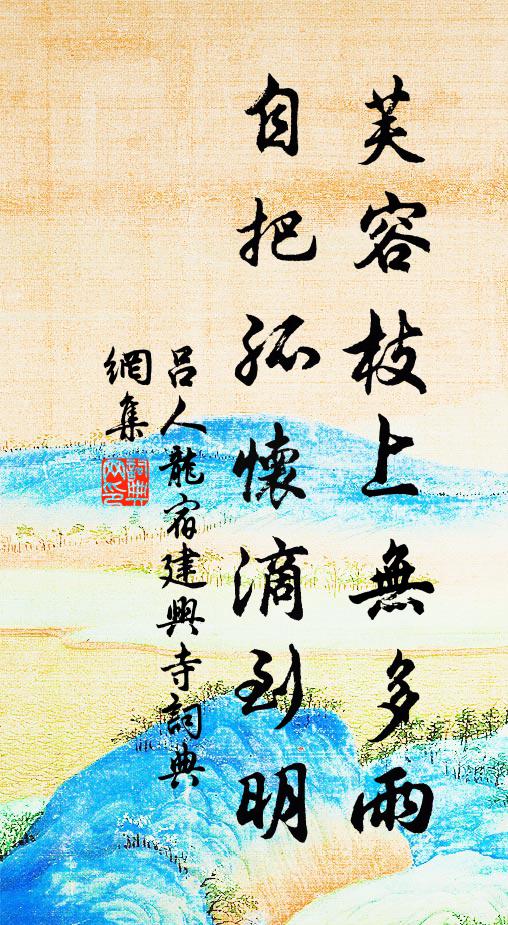 芙容枝上無多雨
自把孤懷滴到明
呂人龍宿建興寺詞典
網集
詞典
网印